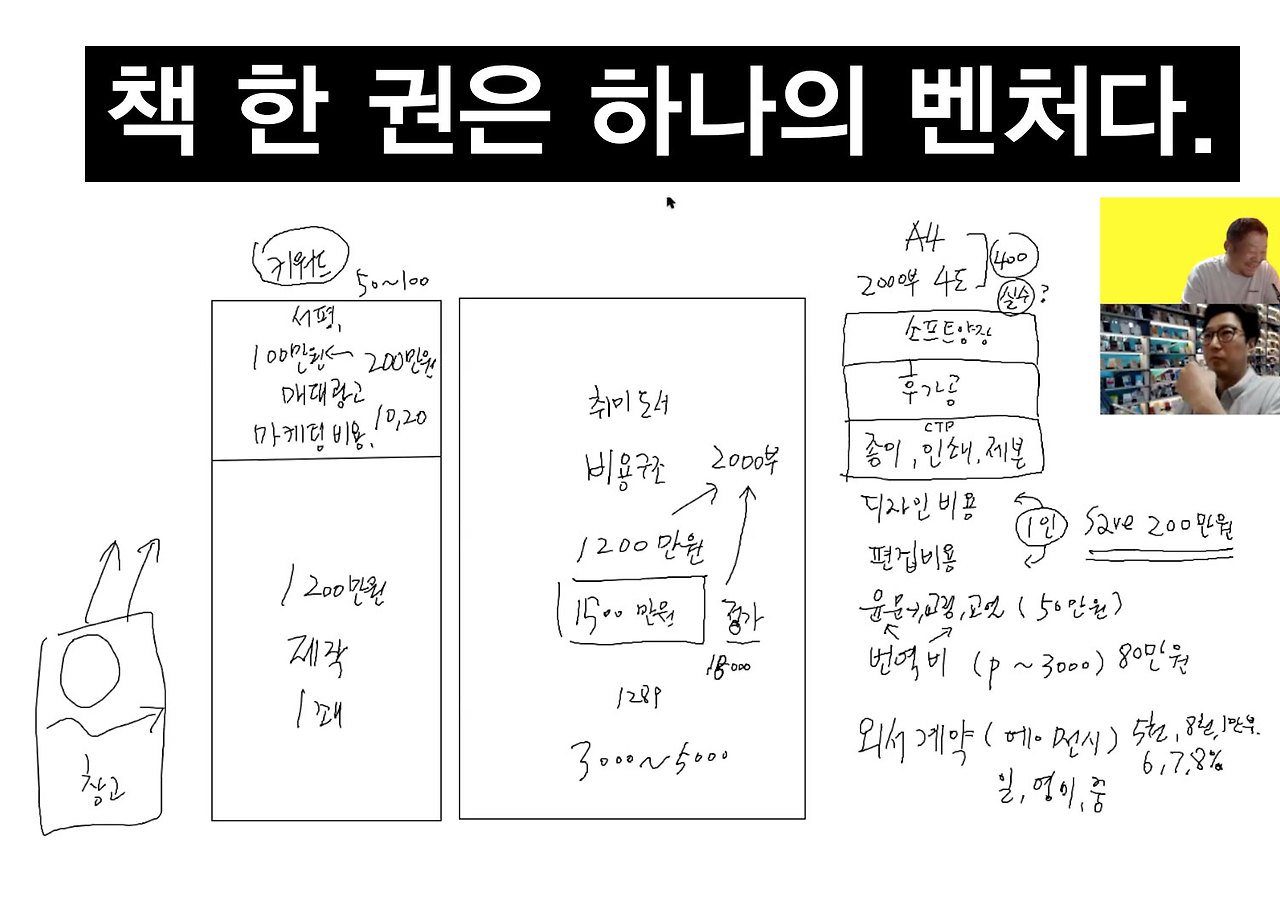 책 한 권은 하나의 벤처다.
키워드
50~100
서평,
100만원← 200만원
매대광고
마케팅 비용, 10,20
1200만원
제작
1쇄
창고
취미도서
비용구조 2000부
1200만원
1500만원 정가
18000
128P
3000~5000
A4
200부 4도
400
실수?
소프트양장
후가공
CTP
종이, 인쇄, 제본
디자인 비용
1인 Save 200만원
편집비용
윤문, 교정, 교열 (50만원)
번역비 (P ~ 3000) 80만원
외서계약 (에이전시) 5천, 8천, 1만부.
6,7,8%
일, 영미, 중